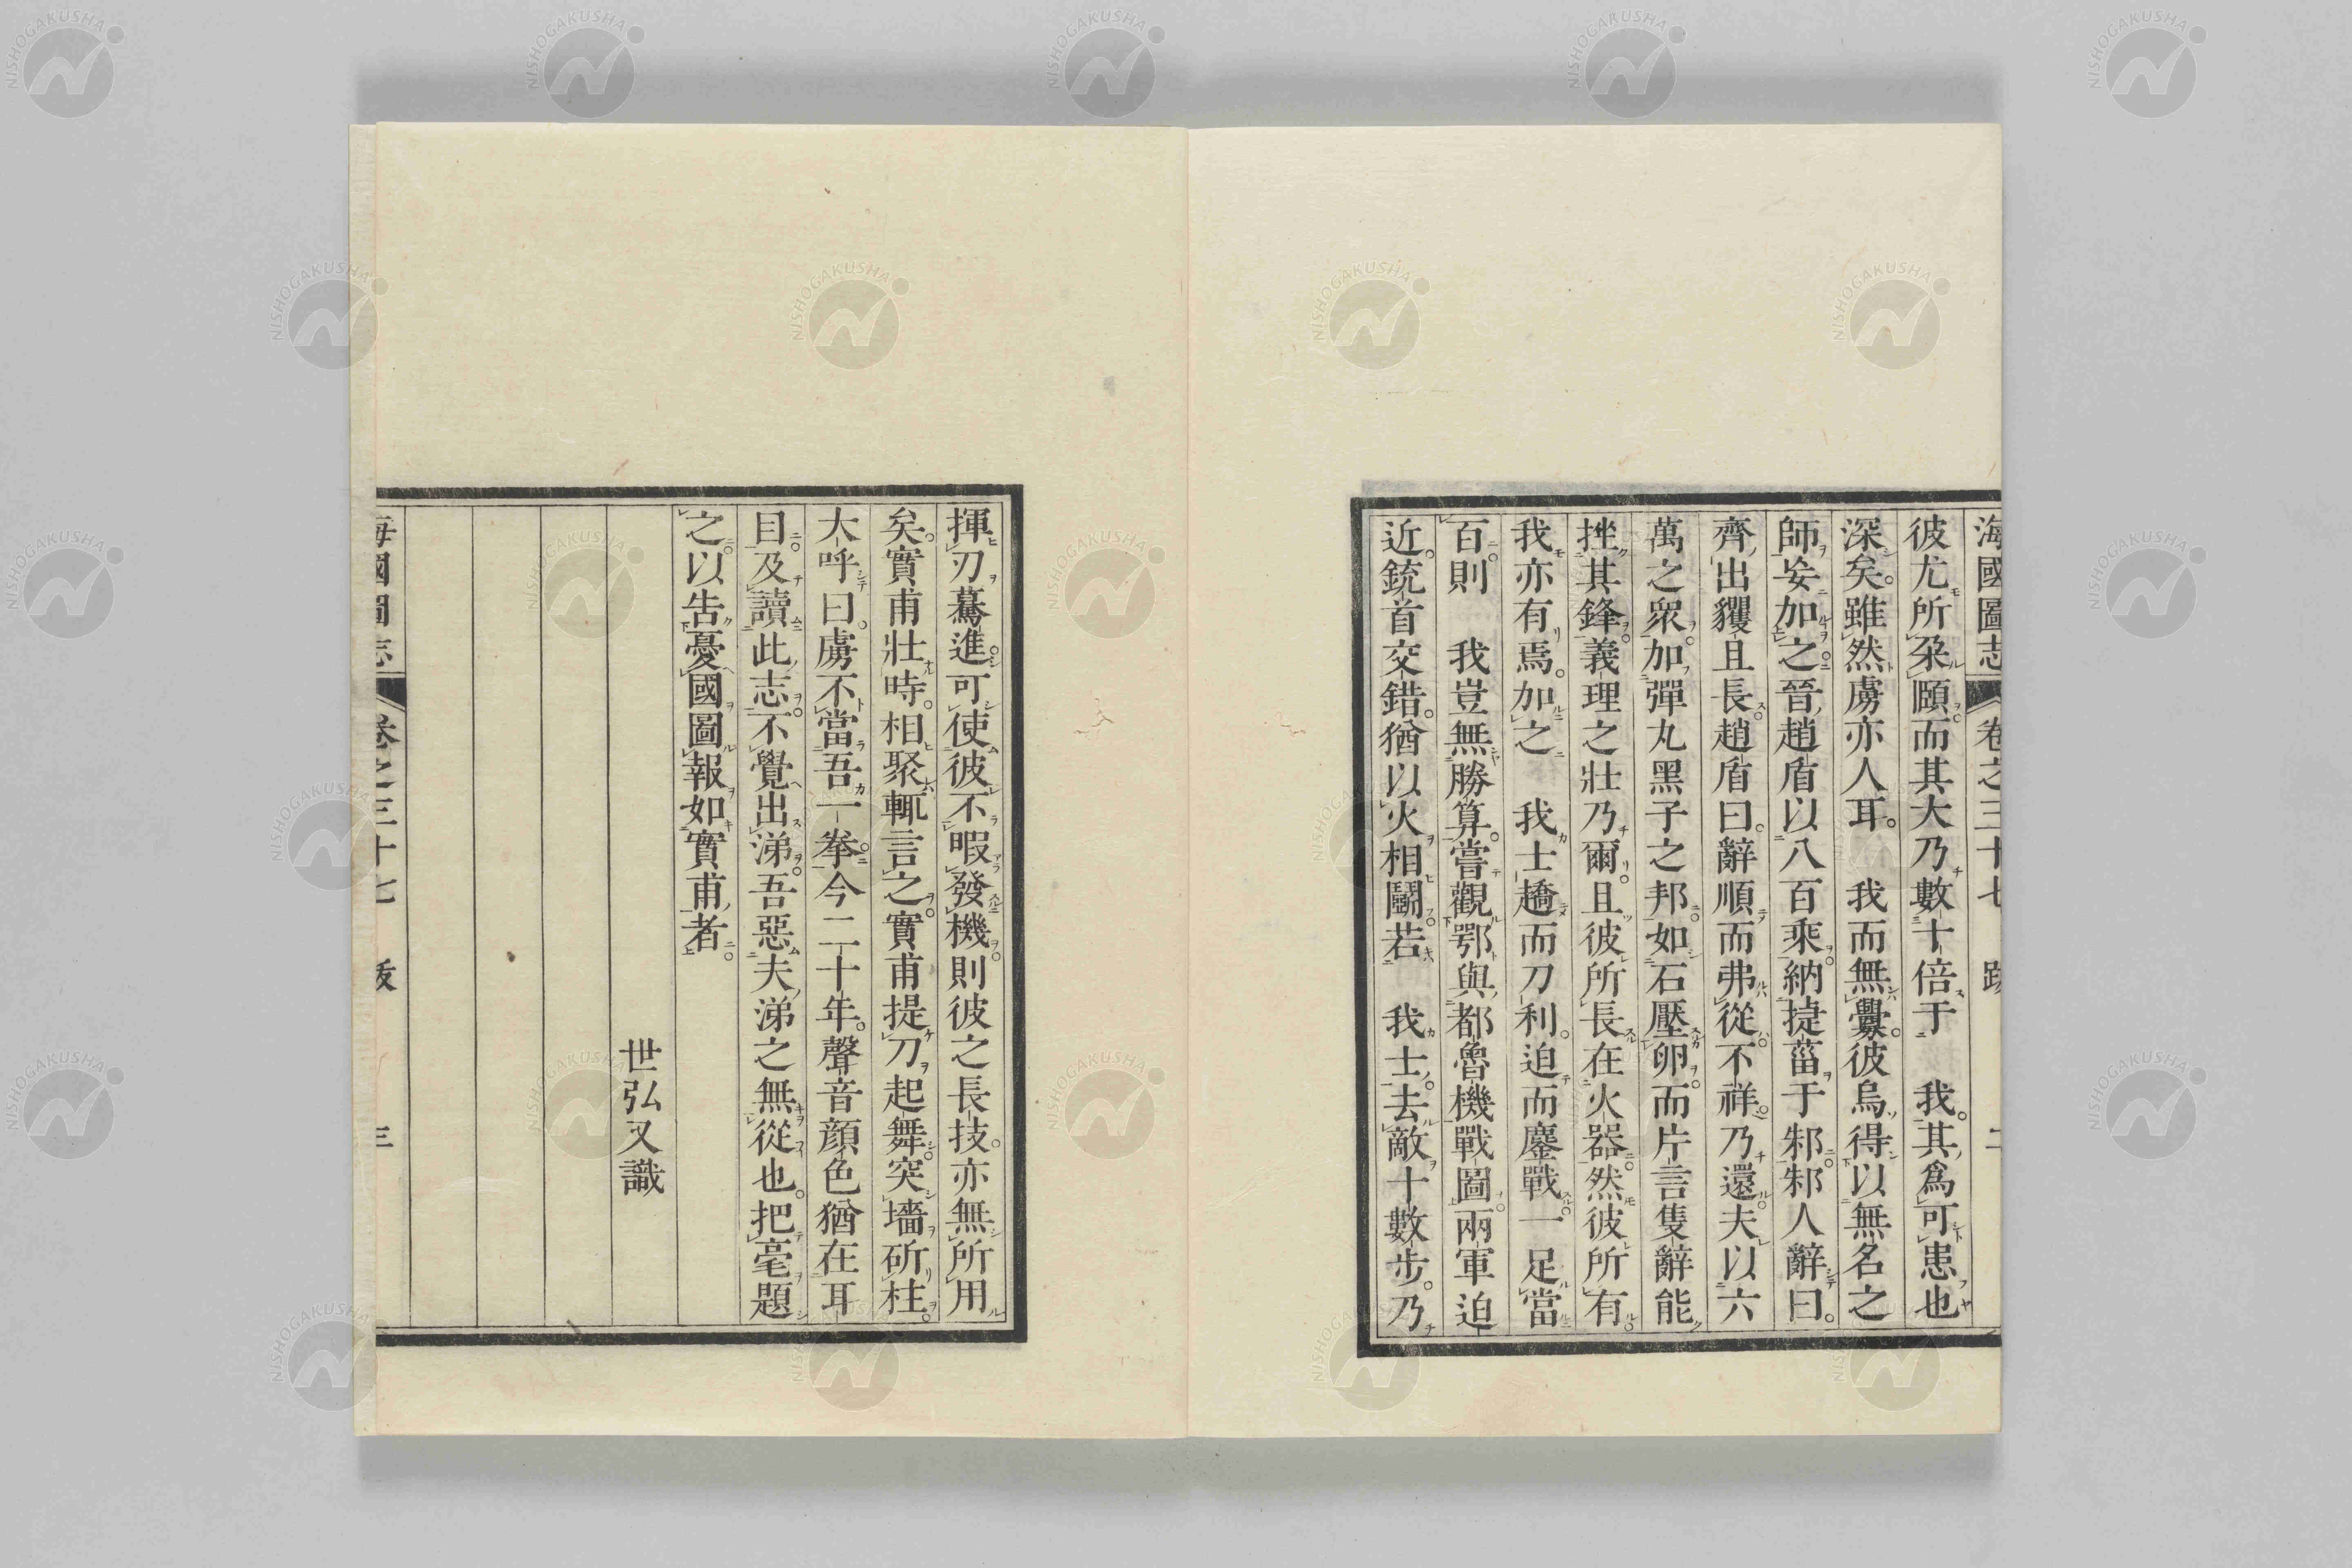 海國圖志 卷之三十七 跋 二
彼尤所朶頤而其大乃數十倍于 我其爲可患也
深矣雖然虜亦人耳 我而無釁彼烏得以無名之
師妄加之晉趙盾以八百乘納捷菑于邾邾人辭曰
齊出貜且長趙盾曰辭順而弗從不祥乃還夫以六
萬之衆加彈丸黑子之邦如石壓卵而片言隻辭能
挫其鋒義理之壯乃爾且彼所長在火器然彼所有
我亦有焉加之 我士趫而刀利迫而鏖戰一足當
百則 我豈無勝算嘗觀鄂與都魯機戰圖兩軍迫
近銃首交錯猶以火相鬭若 我士去敵十數步乃
揮刃驀進可使彼不暇發機則彼之長技亦無所用
矣實甫壯時相聚輒言之實甫提刀起舞突墻斫柱
大呼曰虜不當吾一拳今二十年聲音顏色猶在耳
目及讀此志不覺出涕吾惡夫涕之無從也把毫題
之以告憂國圖報如實甫者
世弘又識
海國圖志 卷之三十七 跋 三
NISHOGAKUSHA